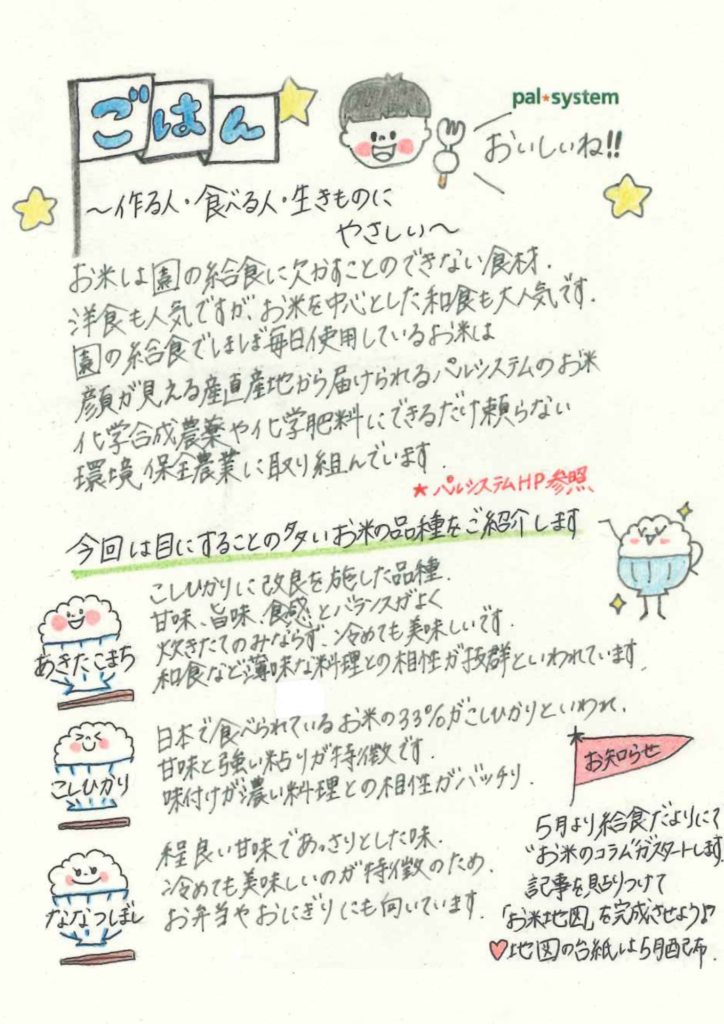 ごはん
pal*system
おいしいね!!
〜作る人・食べる人・生きものに
やさしい〜
お米は園の給食に欠かすことのできない食材.
洋食も人気ですが、お米を中心とした和食も大人気です.
園の給食でほぼ毎日使用しているお米は
顔が見える産直産地から届けられるパルシステムのお米
化学合成農薬や化学肥料にできるだけ頼らない
環境保全農業に取り組んでいます.
★パルシステムHP参照
今回は目にすることの多いお米の品種をご紹介します
あきたこまち
こしひかりに改良を施した品種.
甘味、旨味、食感とバランスがよく
炊きたてのみならず、冷めても美味しいです.
和食など薄味な料理との相性が抜群といわれています.
こしひかり
日本で食べられているお米の33%がこしひかりといわれ.
甘味と強い粘りが特徴です.
味付けが濃い料理との相性がバッチリ.
ななつぼし
程良い甘味であっさりとした味.
冷めても美味しいのが特徴のため.
お弁当やおにぎりにも向いています.
お知らせ
5月より給食だよりにて
"お米のコラム"がスタートします.
記事を貼りつけて
「お米地図」を完成させよう♪
♥地図の台紙は5月配布.